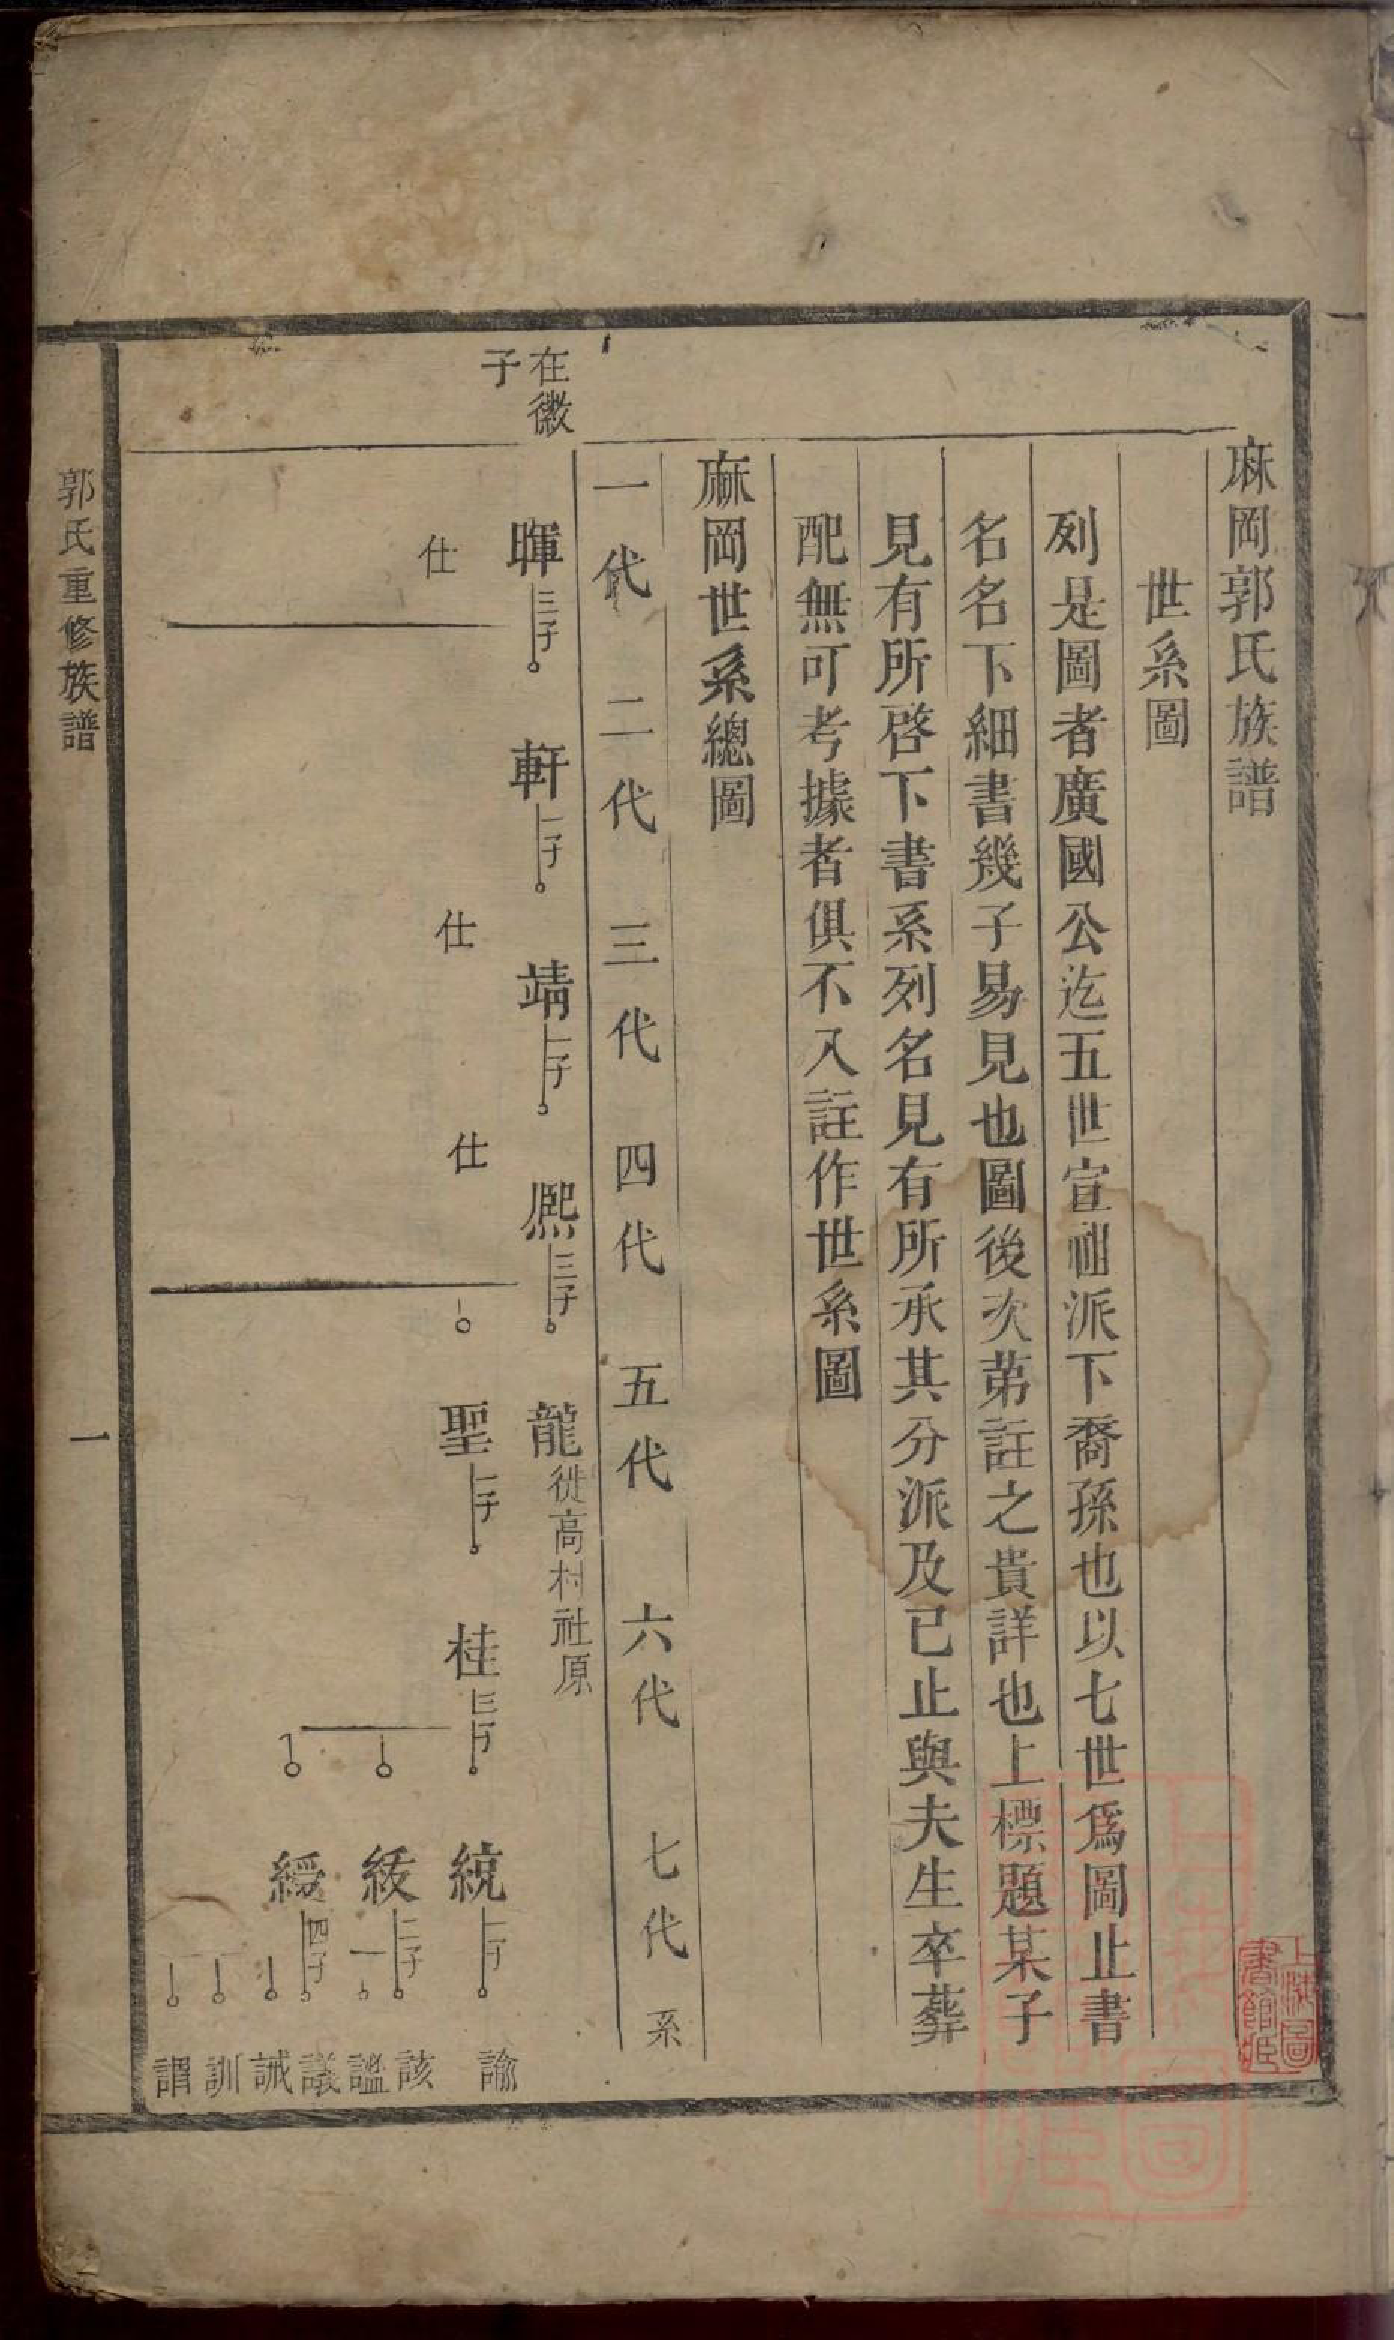 麻岡郭氏族譜
世系圖
列是圖者廣國公迄五世宣祖派下裔孫也以七世爲圖止書
名名下細書幾子易見也圖後次苐註之貴詳也上標題某子
見有所啓下書系列名見有所承其分派及已止與夫生卒葬
配無可考據者俱不入註作世系圖
麻岡世系總圖
一代 二代 三代 四代 五代 六代 七代 系
在徽
子
暉 三子 軒 一子 靖 一子 熈 三子 龍 徙高村社原
仕 仕 仕 聖 一子 桂 三子 統 一子 諭
𦀖 二子 該 謐
綬 四子 議 誡 訓 謂
郭氏重修族譜
一
上海圖
書館藏